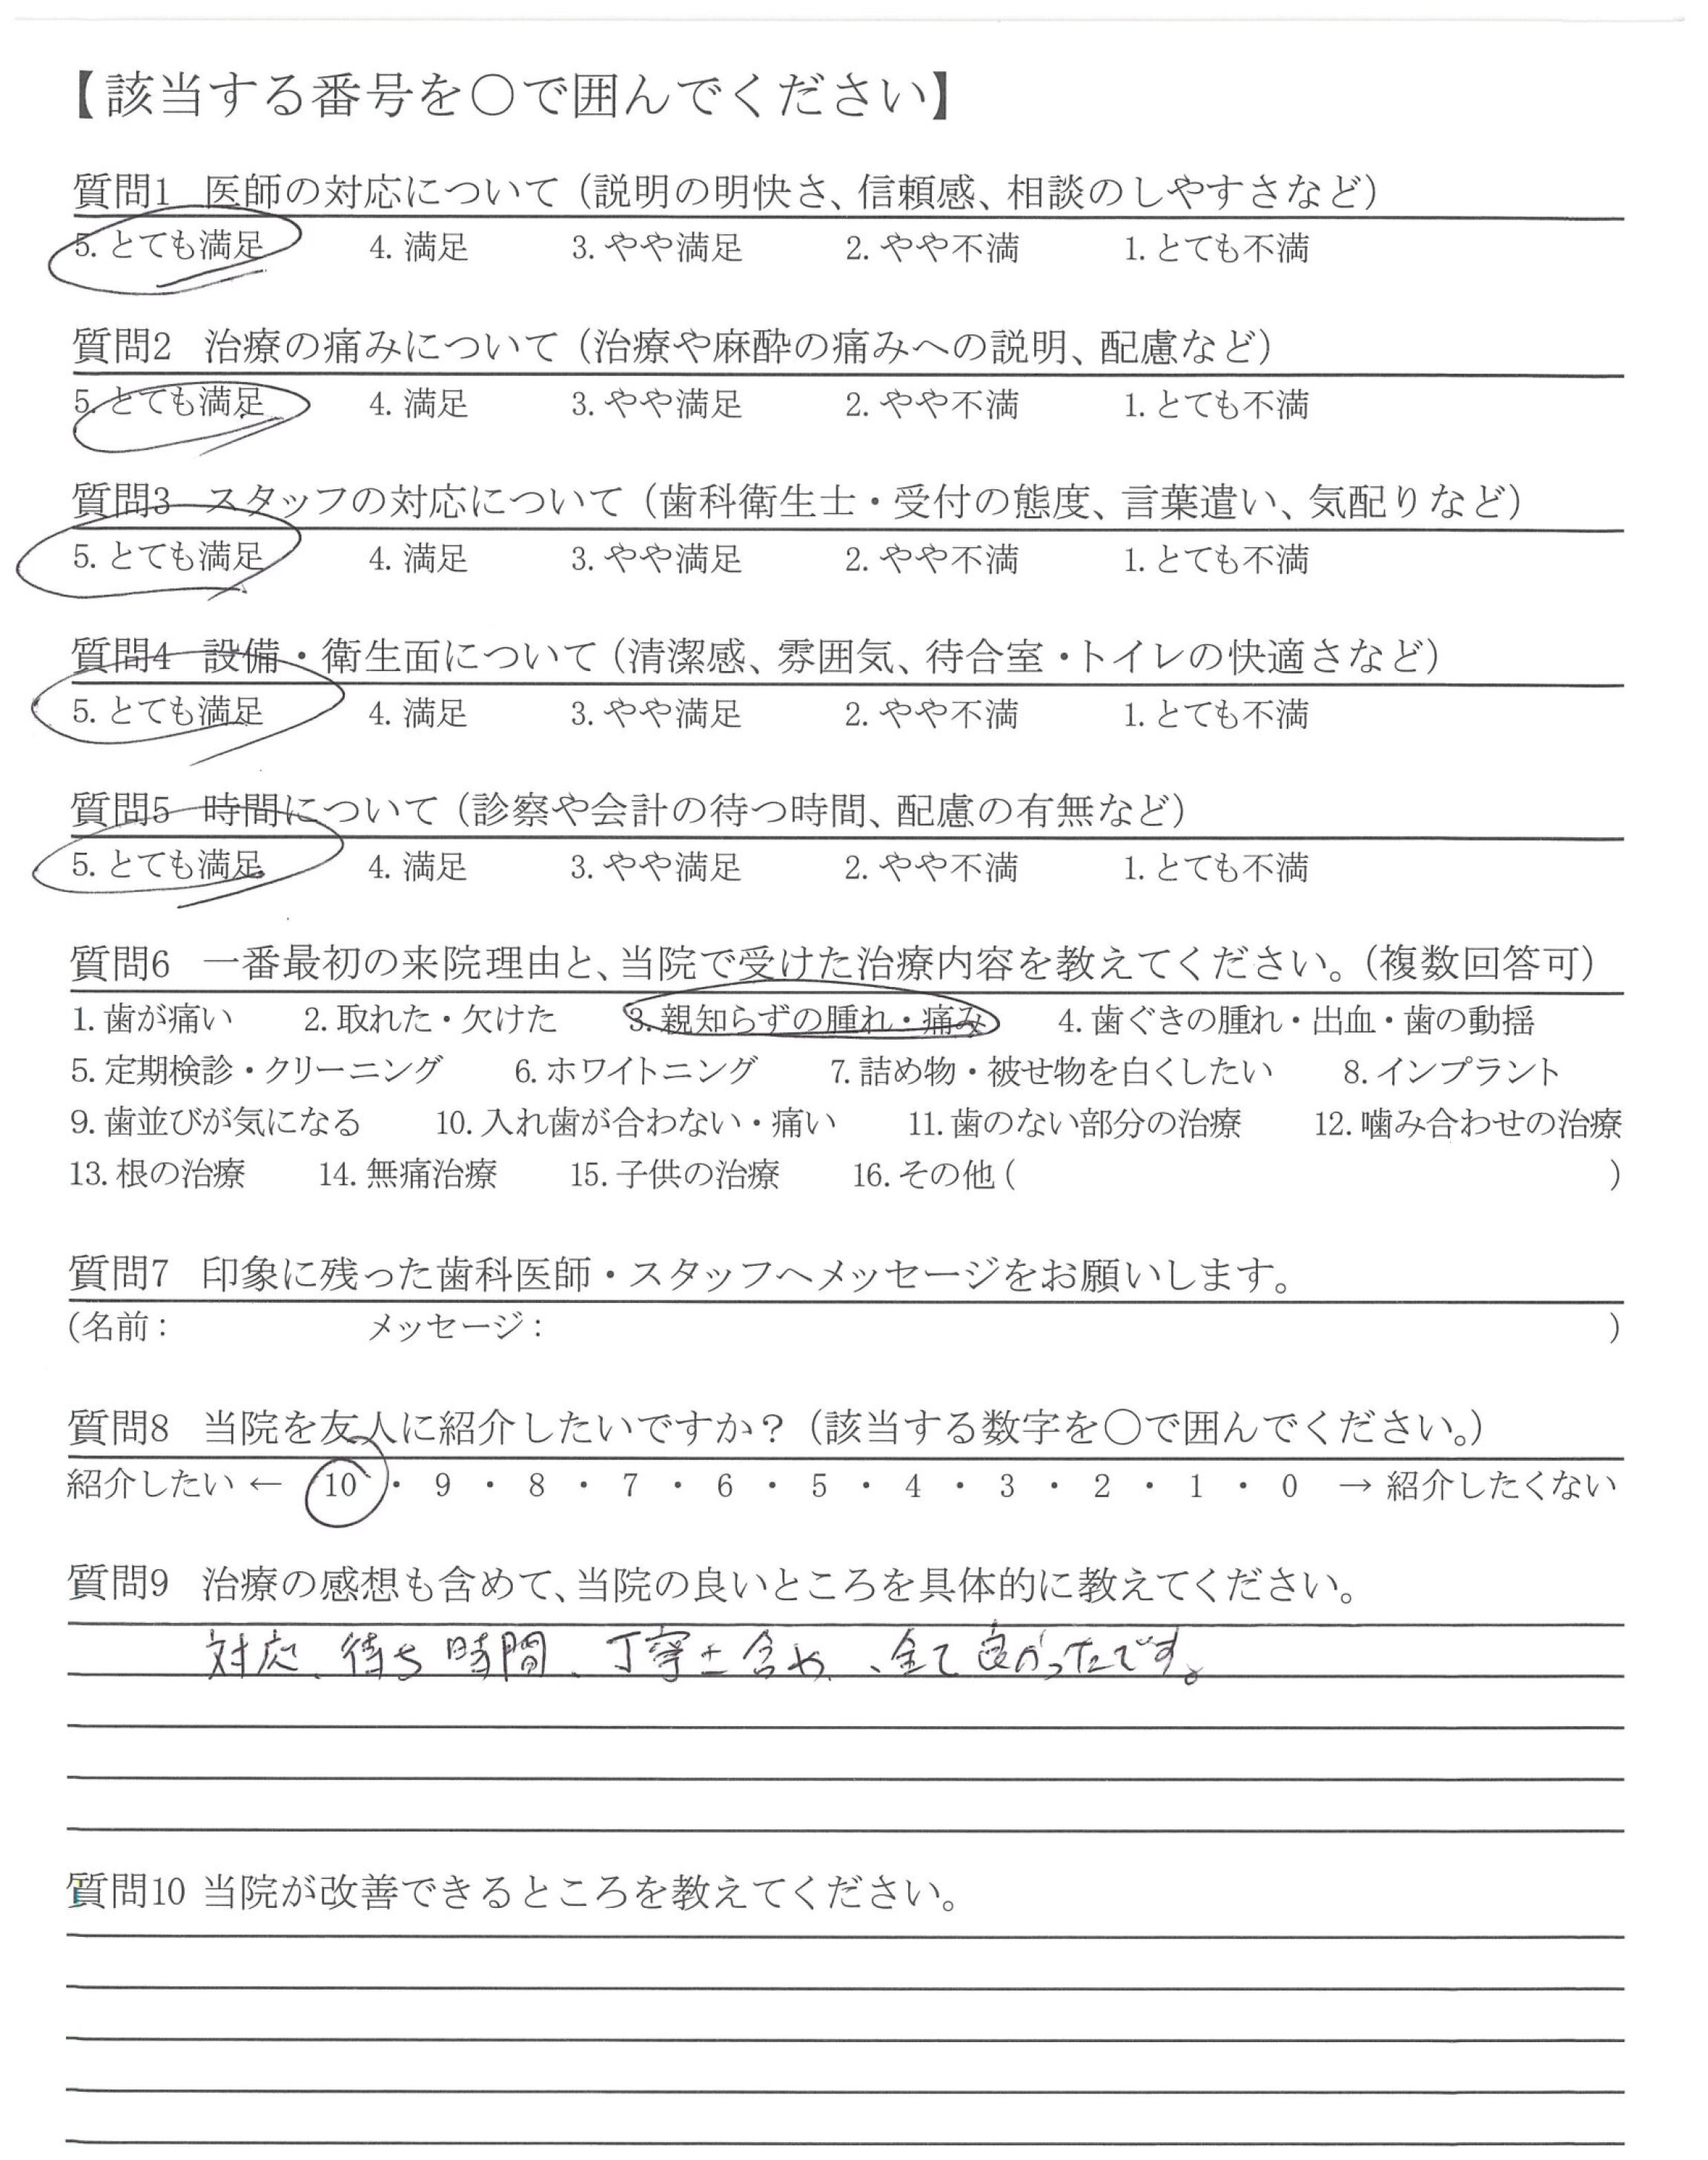 【該当する番号を○で囲んでください】
質問1 医師の対応について（説明の明快さ、信頼感、相談のしやすさなど）
5. とても満足 4. 満足 3. やや満足 2. やや不満 1. とても不満
質問2 治療の痛みについて（治療や麻酔の痛みへの説明、配慮など）
5. とても満足 4. 満足 3. やや満足 2. やや不満 1. とても不満
質問3 スタッフの対応について（歯科衛生士・受付の態度、言葉遣い、気配りなど）
5. とても満足 4. 満足 3. やや満足 2. やや不満 1. とても不満
質問4 設備・衛生面について（清潔感、雰囲気、待合室・トイレの快適さなど）
5. とても満足 4. 満足 3. やや満足 2. やや不満 1. とても不満
質問5 時間について（診察や会計の待つ時間、配慮の有無など）
5. とても満足 4. 満足 3. やや満足 2. やや不満 1. とても不満
質問6 一番最初の来院理由と、当院で受けた治療内容を教えてください。（複数回答可）
1. 歯が痛い 2. 取れた・欠けた 3. 親知らずの腫れ・痛み 4. 歯ぐきの腫れ・出血・歯の動揺
5. 定期検診・クリーニング 6. ホワイトニング 7. 詰め物・被せ物を白くしたい 8. インプラント
9. 歯並びが気になる 10. 入れ歯が合わない・痛い 11. 歯のない部分の治療 12. 噛み合わせの治療
13. 根の治療 14. 無痛治療 15. 子供の治療 16. その他（ ）
質問7 印象に残った歯科医師・スタッフへメッセージをお願いします。
（名前： メッセージ： ）
質問8 当院を友人に紹介したいですか？（該当する数字を○で囲んでください。）
紹介したい ← 10 ・ 9 ・ 8 ・ 7 ・ 6 ・ 5 ・ 4 ・ 3 ・ 2 ・ 1 ・ 0 → 紹介したくない
質問9 治療の感想も含めて、当院の良いところを具体的に教えてください。
対応、待ち時間、丁寧さ含め、全て良かったです。
質問10 当院が改善できるところを教えてください。